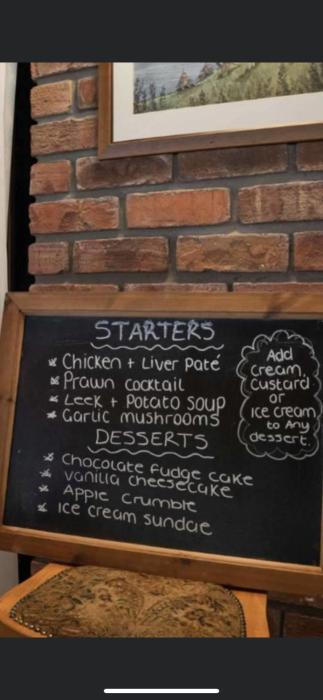 STARTERS
Chicken + Liver Paté
Prawn cocktail
Leek + Potato Soup
Garlic mushrooms
DESSERTS
Chocolate fudge cake
vanilla cheesecake
Apple Crumble
Ice cream sundae
Add
cream,
custard
or
Ice cream
to Any
dessert.